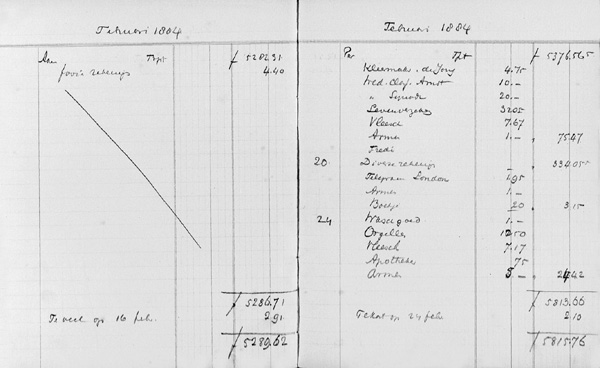 Februari 1884
Aan Tspt ƒ 5282.31
foois rekening 4.40
ƒ 5286.71
Te veel op 16 febr. 2.91
ƒ 5289.62
Februari 1884
Per Tspt ƒ 5376.565
de Jong 4.75
Wed. Amst 10.-
" 20.-
Levensverzek 32.05
Vleesch 7.67
Armen 1.- " 75.47
Fredi
20 Diverse rekening - " 334.055
Telegram London 1.95
Armen 1.-
Bootje .20 " 3.15
24 Waschgoed 1.-
Orgelles 12.50
Vleesch 7.17
Apotheker .75
Armen 3.- " 24.42
ƒ 5813.66
Tekort op 24 febr. 2.10
ƒ 5815.76